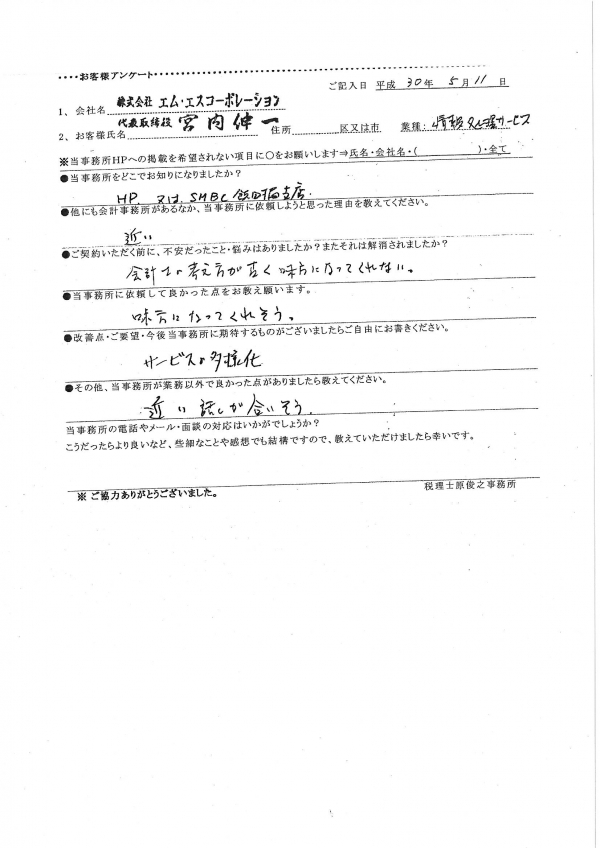 ・・・・お客様アンケート・・・・・・・・・・・・・・・・・・・・・・・・・・・・・・・・
ご記入日 平成 30年 5月 11日
1、会社名 株式会社 エム・エスコーポレーション
2、お客様氏名 代表取締役 宮内伸一 住所 区又は市 業種: 情報処理サービス
※当事務所HPへの掲載を希望されない項目に〇をお願いします⇒氏名・会社名・( )・全て
●当事務所をどこでお知りになりましたか?
HP 又は SMBC 飯田橋支店.
●他にも会計事務所があるなか、当事務所に依頼しようと思った理由を教えてください。
近い
●ご契約いただく前に、不安だったこと・悩みはありましたか?またそれは解消されましたか?
会計士の考え方が古く味方になってくれない。
●当事務所に依頼して良かった点をお教え願います。
味方になってくれそう。
●改善点・ご要望・今後当事務所に期待するものがございましたらご自由にお書きください。
サービスの多様化
●その他、当事務所が業務以外で良かった点がありましたら教えてください。
近い 話しが合いそう.
当事務所の電話やメール・面談の対応はいかがでしょうか?
こうだったらより良いなど、些細なことや感想でも結構ですので、教えていただけましたら幸いです。
※ ご協力ありがとうございました。
税理士原俊之事務所